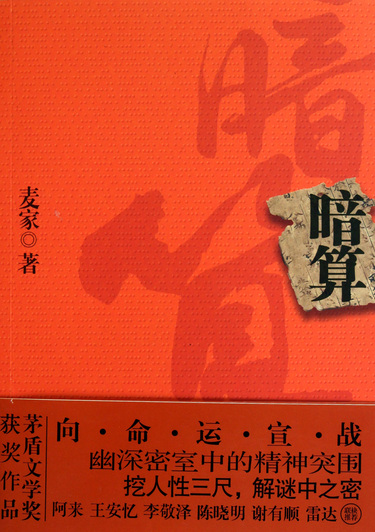 暗算
暗算
麦家◎著
茅盾文学奖
获奖作品
向·命·运·宣·战
幽深密室中的精神突围
挖人性三尺，解谜中之密
阿来 王安忆 李敬泽 陈晓明 谢有顺 雷达 联袂推荐